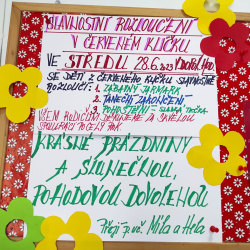 SLAVNOSTNÍ ROZLOUČENÍ
V ČERVENÉM KLÍČKU
VE STŘEDU 28.6.2023
SE DĚTI Z ČERVENÉHO KLÍČKU SLAVNOSTNĚ
ROZLOUČÍ: 1. ZÁBAVNÝ JARMARK
2. TANEČNÍ ZAKONČENÍ
3. POHOŠTĚNÍ
VŠEM RODIČŮM DĚKUJEME ZA SKVĚLOU
SPOLUPRÁCI PO CELÝ ROK
KRÁSNÉ PRÁZDNINY
A SLUNEČNOU,
POHODOVOU DOVOLENOU
Přejí p. uč. Míla a Hela